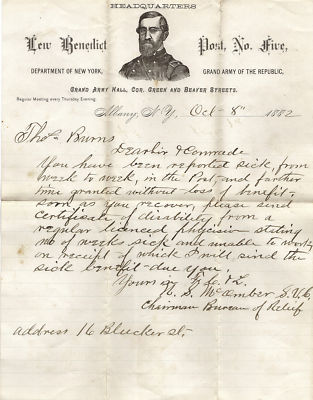 HEADQUARTERS
Lew Benedict Post, No. Five,
DEPARTMENT OF NEW YORK, GRAND ARMY OF THE REPUBLIC,
GRAND ARMY HALL, COR. GREEN AND BEAVER STREETS.
Regular Meeting every Thursday Evening.
Albany, N.Y. Oct 8th 1882
Thos Burns
Dear Sir & Comrade
You have been reported sick, from
week to week, in the Post, and further
time granted without loss of benefit,
soon as you recover, please send
certificate of disability from a
regular licenced physician stating
no of weeks sick and unable to work
on receipt of which I will send the
sick benefit due you,
Yours in F. C. & L.
McOmber S.V.C.
Chairman Bureau of Relief
address 16 Bleecker St.